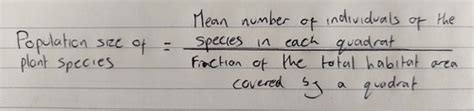 Mean number of individuals of the
Population size of = species in each quadrat
plant species
Fraction of the total habitat area
covered by a quadrat